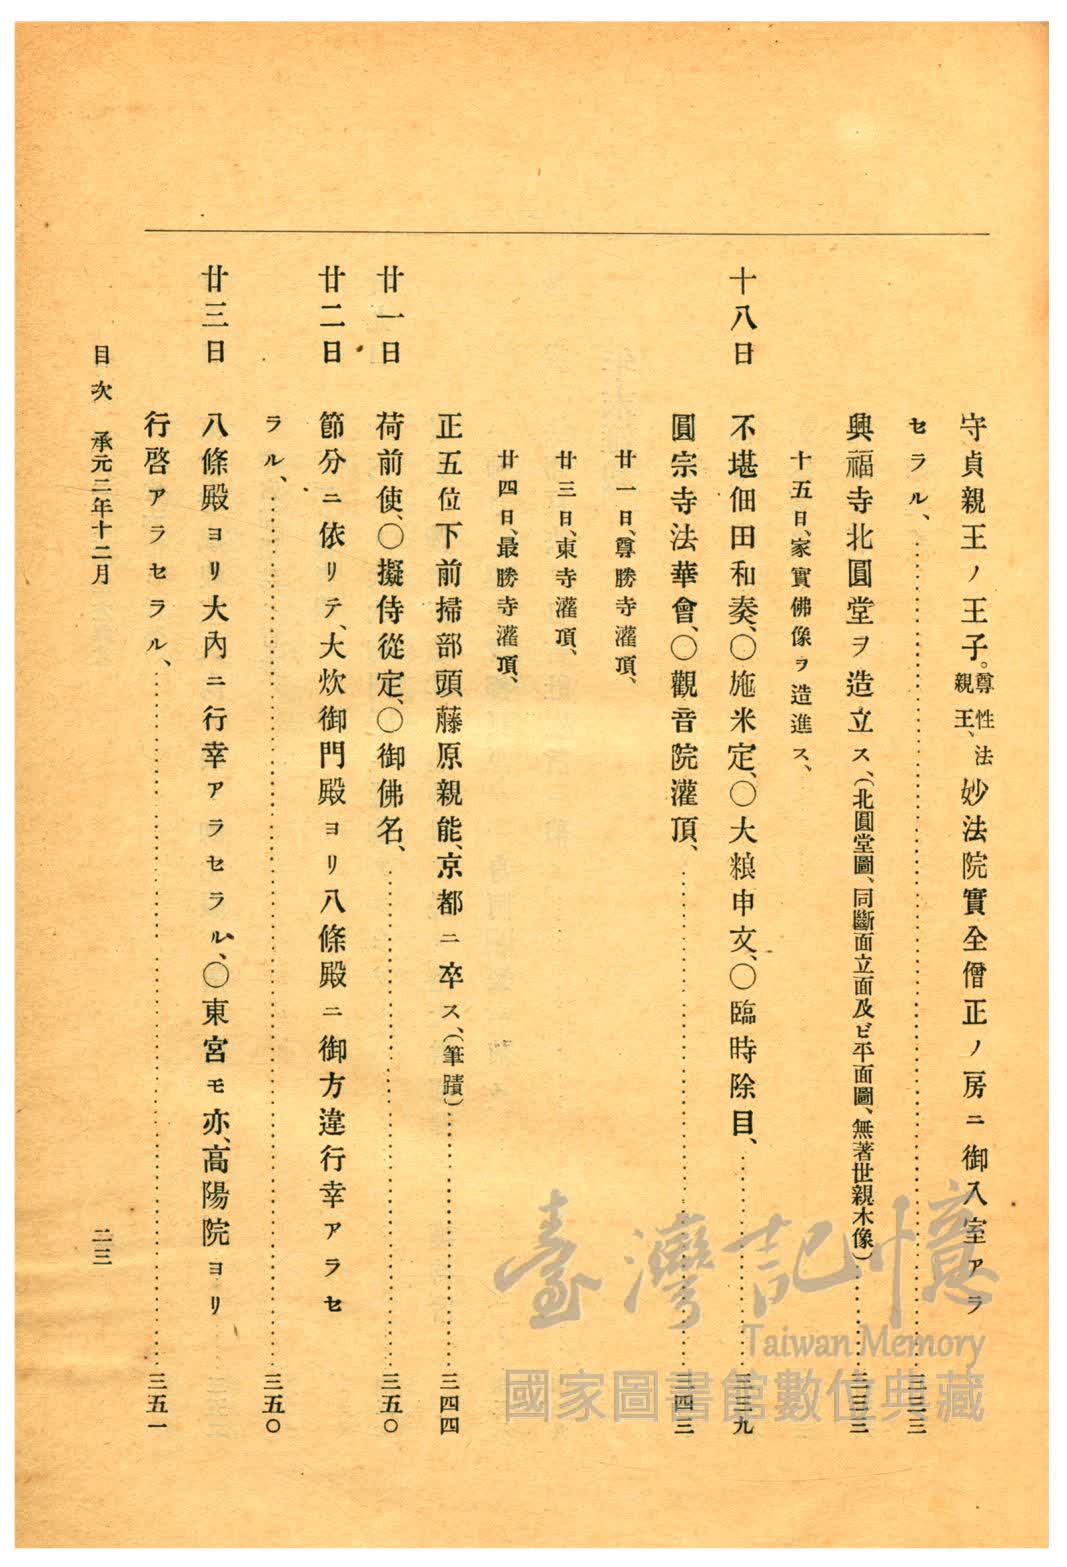 守貞親王ノ王子。尊性法親王、妙法院實全僧正ノ房ニ御入室アラ
セラル、……三三三
興福寺北圓堂ヲ造立ス、（北圓堂圖、同斷面立面及ビ平面圖、無著世親木像）……三三三
十五日、家實佛像ヲ造進ス、
十八日　不堪佃田和奏、〇施米定、〇大粮申文、〇臨時除目、……三三九
圓宗寺法華會、〇觀音院灌頂、……三四三
廿一日、尊勝寺灌頂、
廿三日、東寺灌頂、
廿四日、最勝寺灌頂、
正五位下前掃部頭藤原親能、京都ニ卒ス、（筆蹟）……三四四
廿一日　荷前使、〇擬侍從定、〇御佛名、……三五〇
廿二日　節分ニ依リテ、大炊御門殿ヨリ八條殿ニ御方違行幸アラセ
ラル、……三五〇
廿三日　八條殿ヨリ大內ニ行幸アラセラル、〇東宮モ亦、高陽院ヨリ
行啓アラセラル、……三五一
目次　承元二年十二月　二三
臺灣記憶
Taiwan Memory
國家圖書館數位典藏